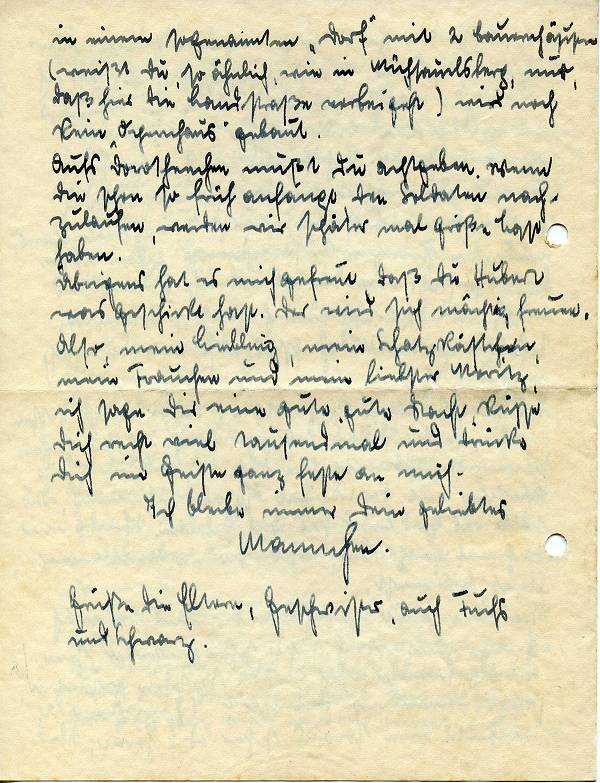 in einem sogenannten „Dorf" mit 2 Bauernhäusern
(weißt Du, so ähnlich, wie in Michaelsberg, nur,
daß hier die Landstraße vorbeigeht) wird noch
kein gebaut.
Aufs Dorotheechen mußt Du achtgeben. Wenn
die schon so früh anfängt, den Soldaten nach-
zulaufen, werden wir später mal große Last
haben.
Übrigens hat es mich gefreut, daß Du Hubert
was geschickt hast. Der wird sich mächtig freuen.
Also, mein Liebling, mein Schatzkästchen,
mein Frauchen und mein liebster Moritz,
ich sage Dir eine gute, gute Nacht, küsse
Dich recht viel tausendmal und drücke
Dich im Geiste ganz feste an mich.
Ich bleibe immer Dein geliebtes
Mannchen.
Grüße die Eltern, Geschwister, auch Fuchs
und Schwarz.